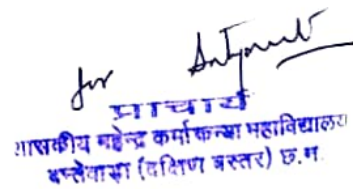 for
प्राचार्य
शासकीय महेन्द्र कर्मा कन्या महाविद्यालय
दन्तेवाड़ा (दक्षिण बस्तर) छ.ग.